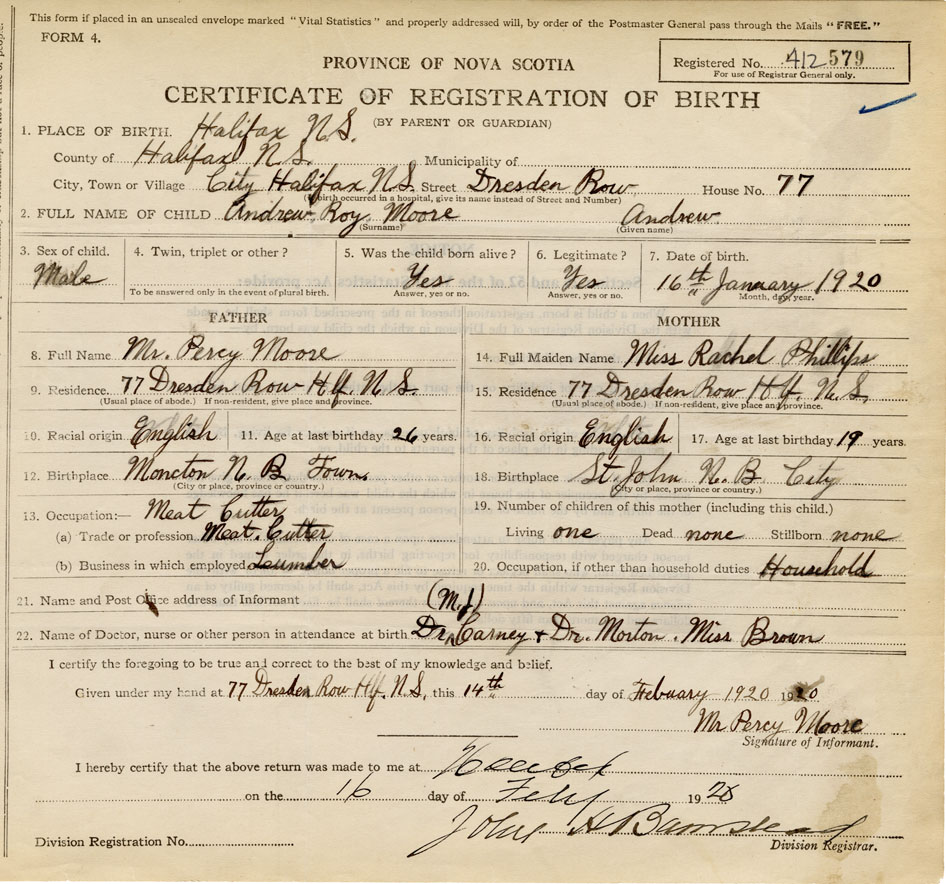 This form if placed in an unsealed envelope marked "Vital Statistics" and properly addressed will, by order of the Postmaster General pass through the Mails "FREE."
FORM 4.
Registered No. 412 579
For use of Registrar General only.
PROVINCE OF NOVA SCOTIA
CERTIFICATE OF REGISTRATION OF BIRTH
(BY PARENT OR GUARDIAN)
1. PLACE OF BIRTH. Halifax N.S.
County of Halifax N.S. Municipality of
City, Town or Village City Halifax N.S. Street Dresden Row House No. 77
(If birth occurred in a hospital, give its name instead of Street and Number)
2. FULL NAME OF CHILD Andrew Roy Moore Andrew
(Surname) (Given name)
3. Sex of child. Male
4. Twin, triplet or other?
To be answered only in the event of plural birth.
5. Was the child born alive? Yes
Answer, yes or no.
6. Legitimate? Yes
Answer, yes or no.
7. Date of birth. 16th January 1920
Month, day, year.
FATHER
8. Full Name Mr. Percy Moore
9. Residence. 77 Dresden Row Hlf. N.S.
(Usual place of abode.) If non-resident, give place and province.
10. Racial origin English 11. Age at last birthday 26 years.
12. Birthplace Moncton N. B. Town
(City or place, province or country.)
13. Occupation:— Meat Cutter
(a) Trade or profession Meat Cutter
(b) Business in which employed Lumber
MOTHER
14. Full Maiden Name Miss Rachel Phillips
15. Residence 77 Dresden Row Hlf. N.S.
(Usual place of abode.) If non-resident, give place and province.
16. Racial origin English 17. Age at last birthday 19 years.
18. Birthplace St. John N. B. City
(City or place, province or country.)
19. Number of children of this mother (including this child.)
Living one Dead none Stillborn none
20. Occupation, if other than household duties Household
21. Name and Post Office address of Informant
(M.J)
22. Name of Doctor, nurse or other person in attendance at birth Dr. Carney + Dr. Morton. Miss Brown
I certify the foregoing to be true and correct to the best of my knowledge and belief.
Given under my hand at 77 Dresden Row Hlf. N.S. this 14th day of February 1920 1920
Mr Percy Moore
Signature of Informant.
I hereby certify that the above return was made to me at
on the 16 day of Feby 1920
John H Barnstead
Division Registration No. Division Registrar.